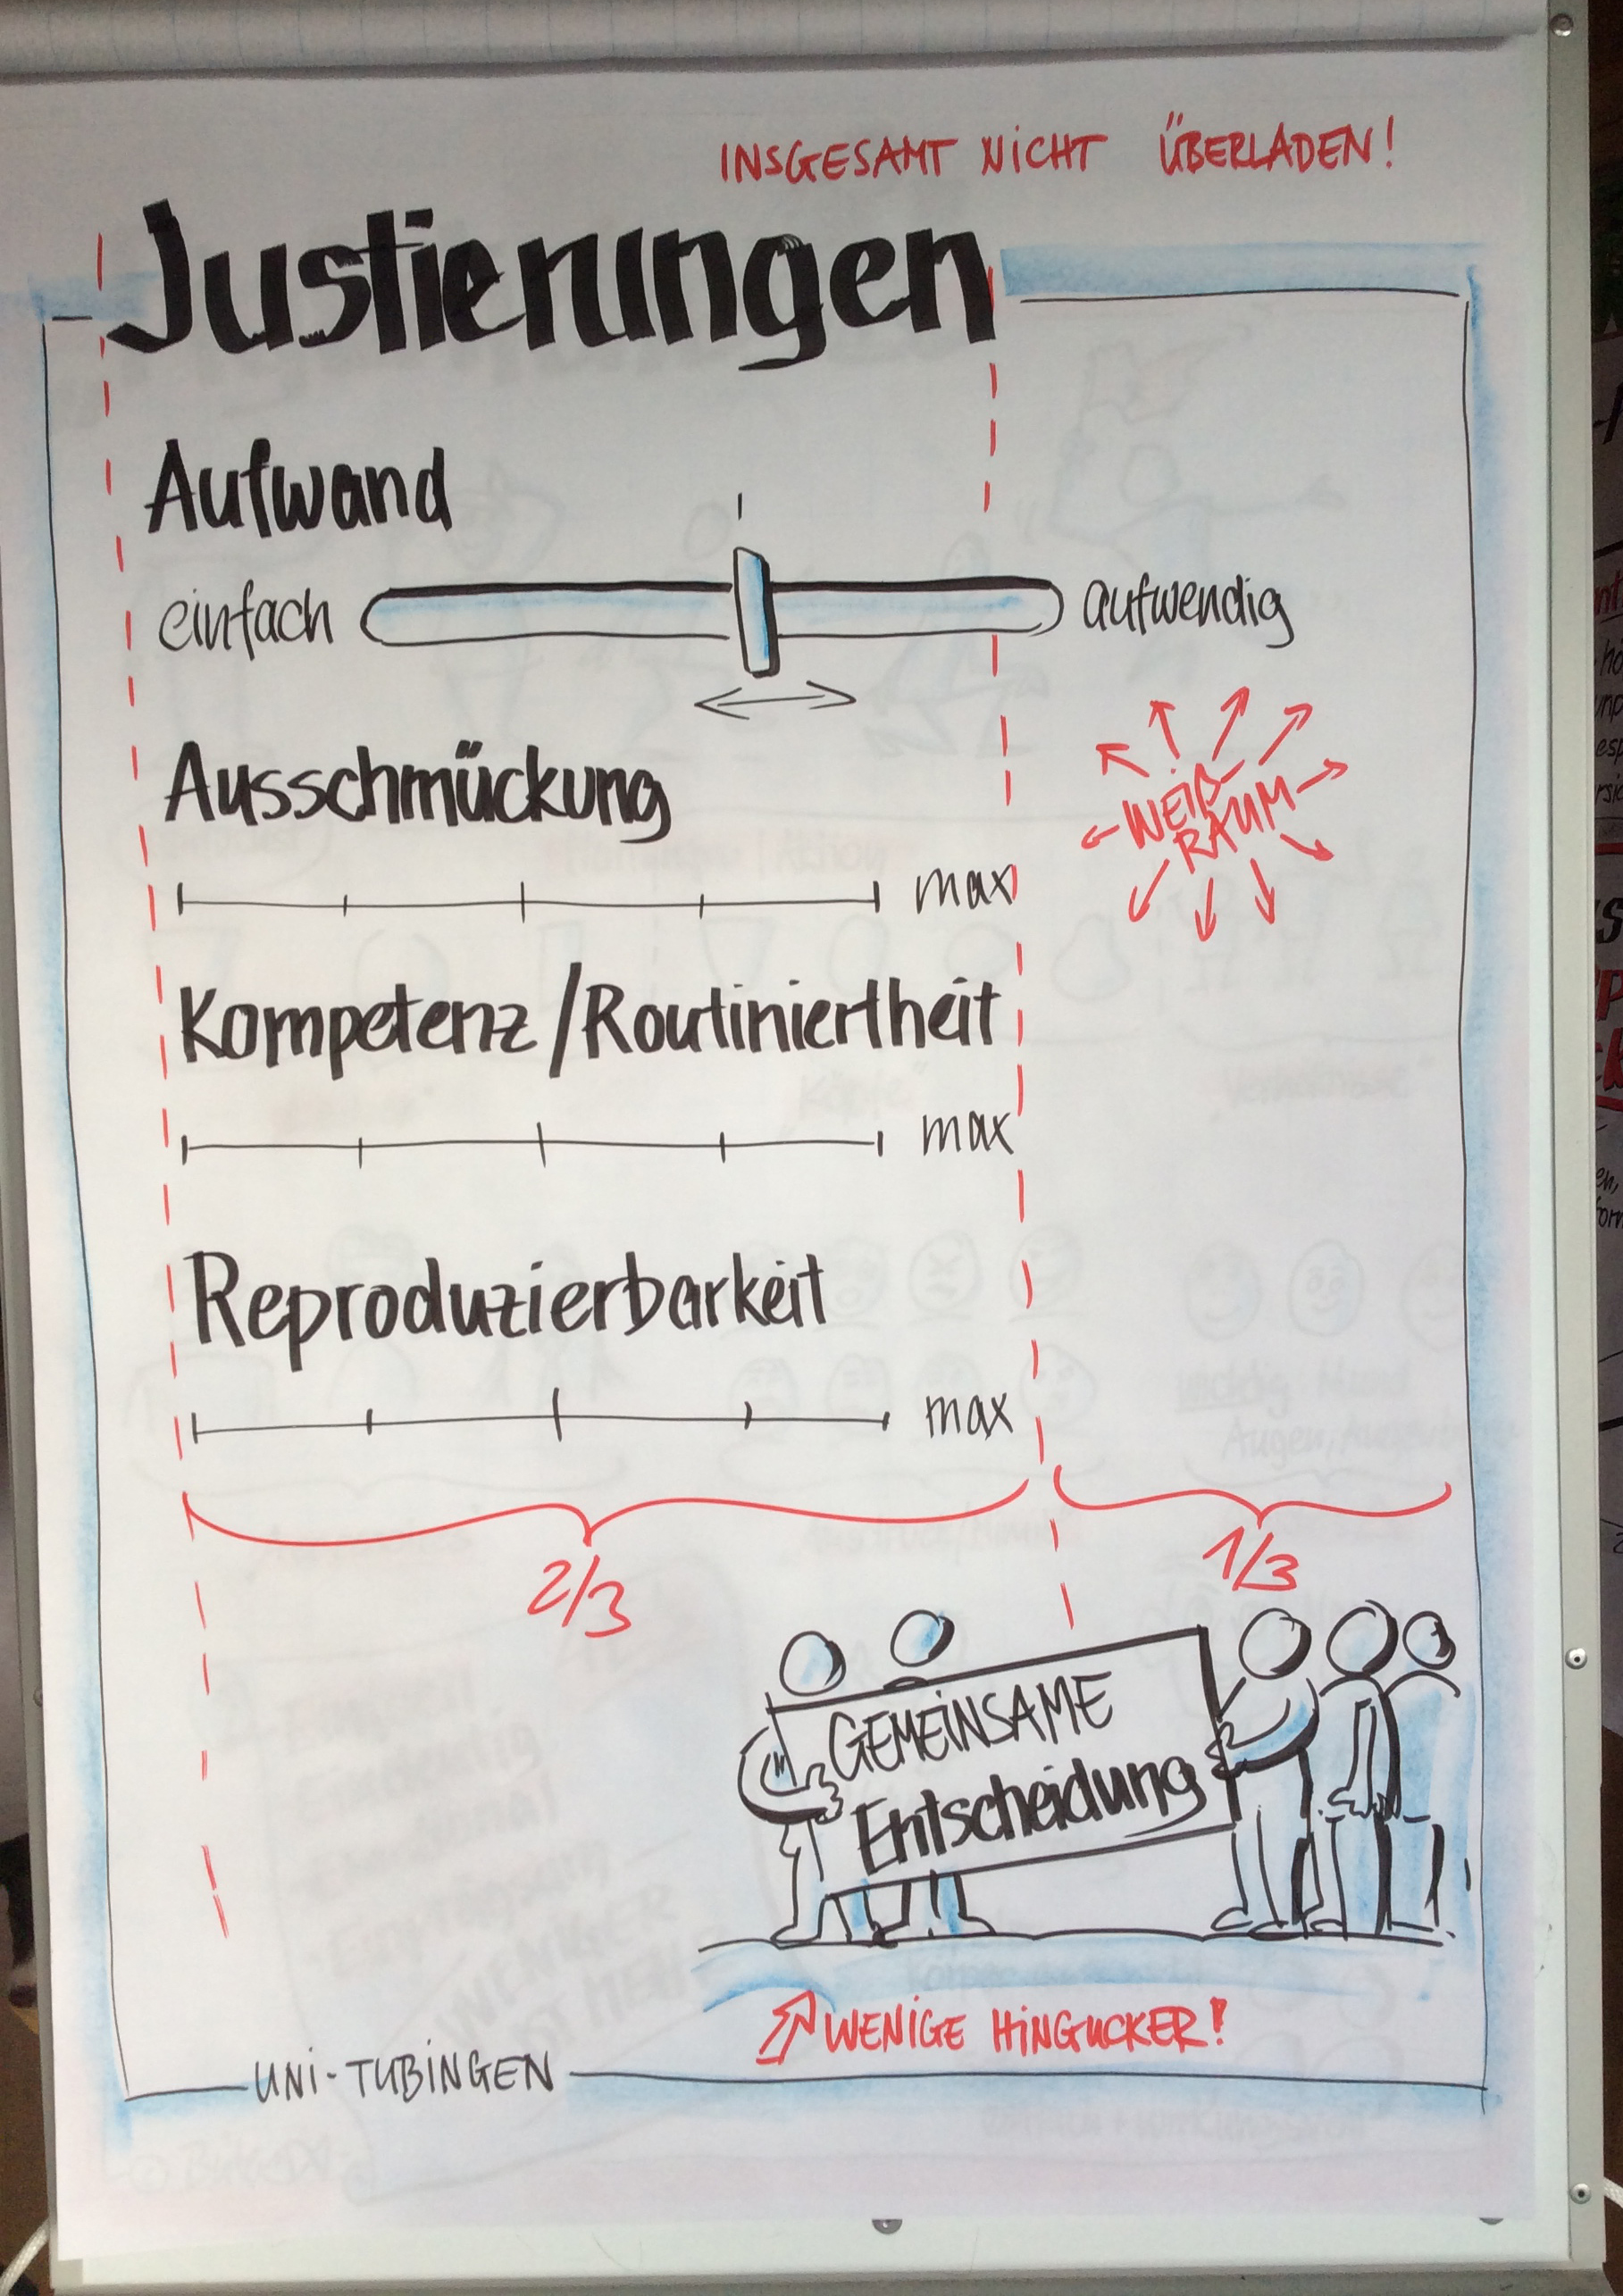 INSGESAMT NICHT ÜBERLADEN!
Justierungen
Aufwand
einfach aufwendig
Ausschmückung
WEIß-
RAUM
max
Kompetenz/Routiniertheit
max
Reproduzierbarkeit
max
2/3 1/3
GEMEINSAME
Entscheidung
WENIGE HINGUCKER!
UNI-TUBINGEN